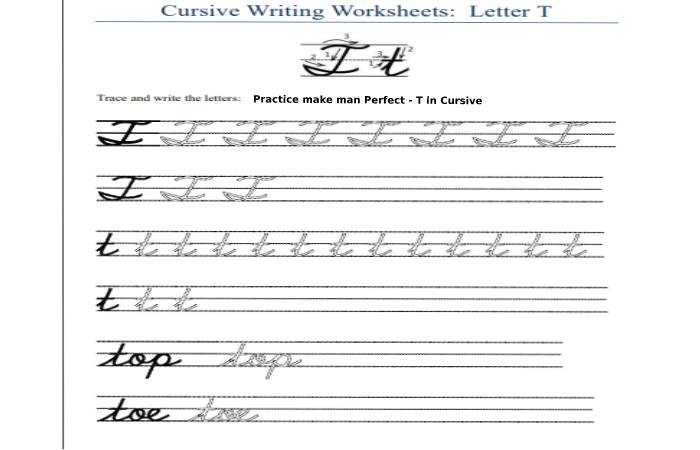 Cursive Writing Worksheets: Letter T
3
2 1 T 3 1 t 2
Trace and write the letters: Practice make man Perfect - T in Cursive
T T T T T T T T
T T T
t t t t t t t t t t t t t
t t t
top top
toe toe